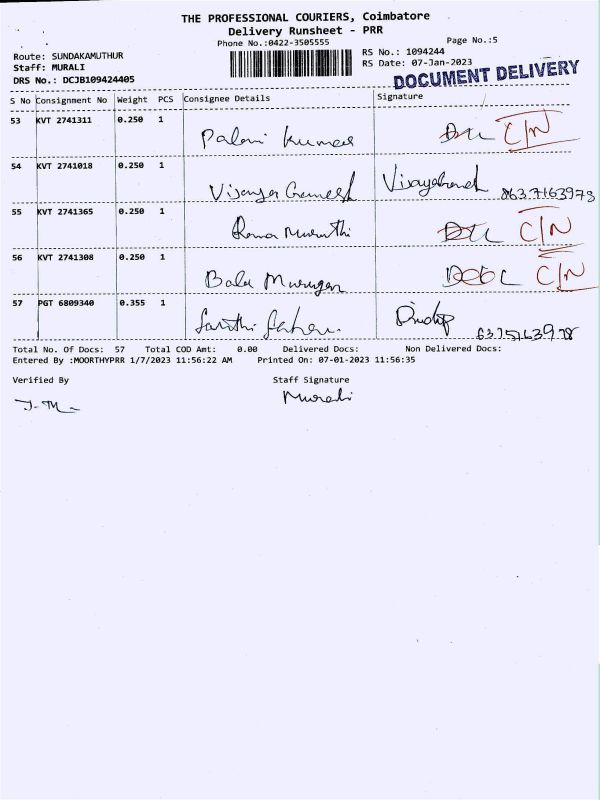 THE PROFESSIONAL COURIERS, Coimbatore
Delivery Runsheet - PRR
Phone No.:0422-3505555
Page No.:5
Route: SUNDAKAMUTHUR
RS No.: 1094244
Staff: MURALI
RS Date: 07-Jan-2023
DRS No.: DCJB109424405
DOCUMENT DELIVERY
S No Consignment No Weight PCS Consignee Details Signature
53 KVT 2741311 0.250 1
Palani Kumar C/N
54 KVT 2741018 0.250 1
Vijaya Ganesh
55 KVT 2741365 0.250 1
Rama Muruthi C/N
56 KVT 2741308 0.250 1
Bala Murugan C/N
57 PGT 6809340 0.355 1
Total No. Of Docs: 57 Total COD Amt: 0.00 Delivered Docs: Non Delivered Docs:
Entered By :MOORTHYPRR 1/7/2023 11:56:22 AM Printed On: 07-01-2023 11:56:35
Verified By Staff Signature
Murali